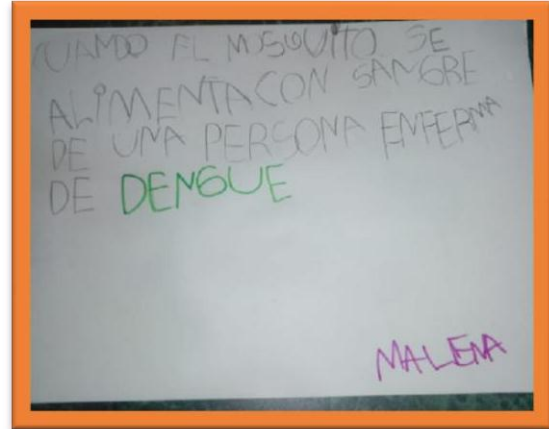 CUANDO EL MOSQUITO SE
ALIMENTA CON SANGRE
DE UNA PERSONA ENFERMA
DE DENGUE
MALENA